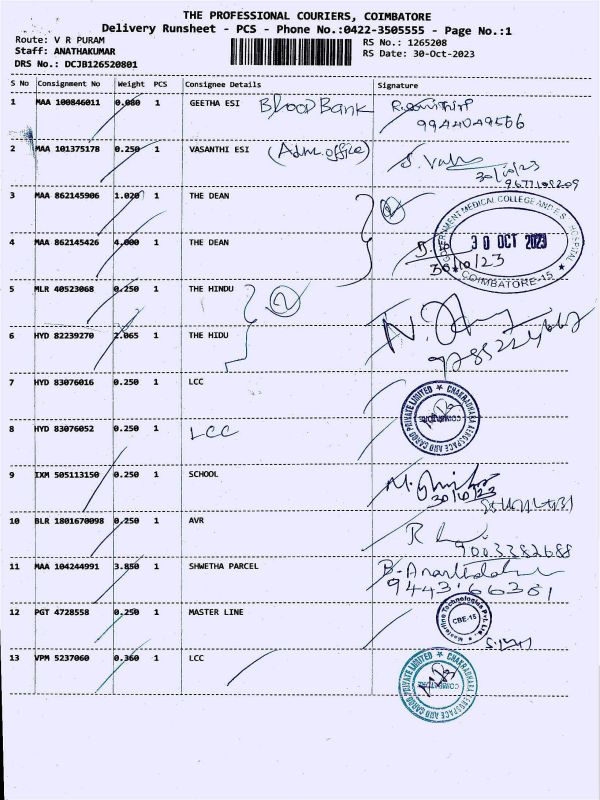 THE PROFESSIONAL COURIERS, COIMBATORE
Delivery Runsheet - PCS - Phone No.:0422-3505555 - Page No.:1
Route: V R PURAM
RS No.: 1265208
Staff: ANATHAKUMAR
RS Date: 30-Oct-2023
DRS No.: DCJB126520801
S No Consignment No Weight PCS Consignee Details Signature
1 MAA 100846011 0.080 1 GEETHA ESI Blood Bank
2 MAA 101375178 0.250 1 VASANTHI ESI (Adm. office)
30/10/23
3 MAA 862145906 1.020 1 THE DEAN 2
GOVERNMENT MEDICAL COLLEGE AND E.S.I. HOSPITAL
30 OCT 2023
COIMBATORE-15
4 MAA 862145426 4.000 1 THE DEAN
30.10/23
5 MLR 40523068 0.250 1 THE HINDU 2
6 HYD 82239270 2.065 1 THE HIDU
7 HYD 83076016 0.250 1 LCC
CHAKRADHARA AEROSPACE AND CARGO PRIVATE LIMITED
COIMBATORE
8 HYD 83076052 0.250 1 LCC
9 IXM 505113150 0.250 1 SCHOOL
30/10/23
10 BLR 1801670098 0.250 1 AVR
9003382688
11 MAA 104244991 3.850 1 SHWETHA PARCEL
12 PGT 4728558 0.250 1 MASTER LINE
Masterline Technologies Pvt. Ltd.
CBE-15
13 VPM 5237060 0.360 1 LCC
CHAKRADHARA AEROSPACE AND CARGO PRIVATE LIMITED
COIMBATORE